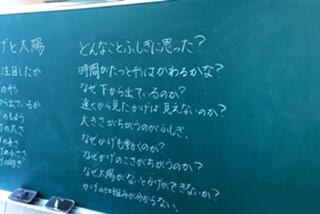 どんなことふしぎに思った？
時間がたつと形はかわるかな？
なぜ下から出ているのか？
遠くから見たかげは見えないのか？
大きさがちがうのがふしぎ。
なぜかげも動くのか？
なぜかげのこさがちがうのか？
なぜ太陽がないとかげができないのか？
かげの仕組みが分からない。
げと太陽
注目したか
から出ているか
の太さ
の向き